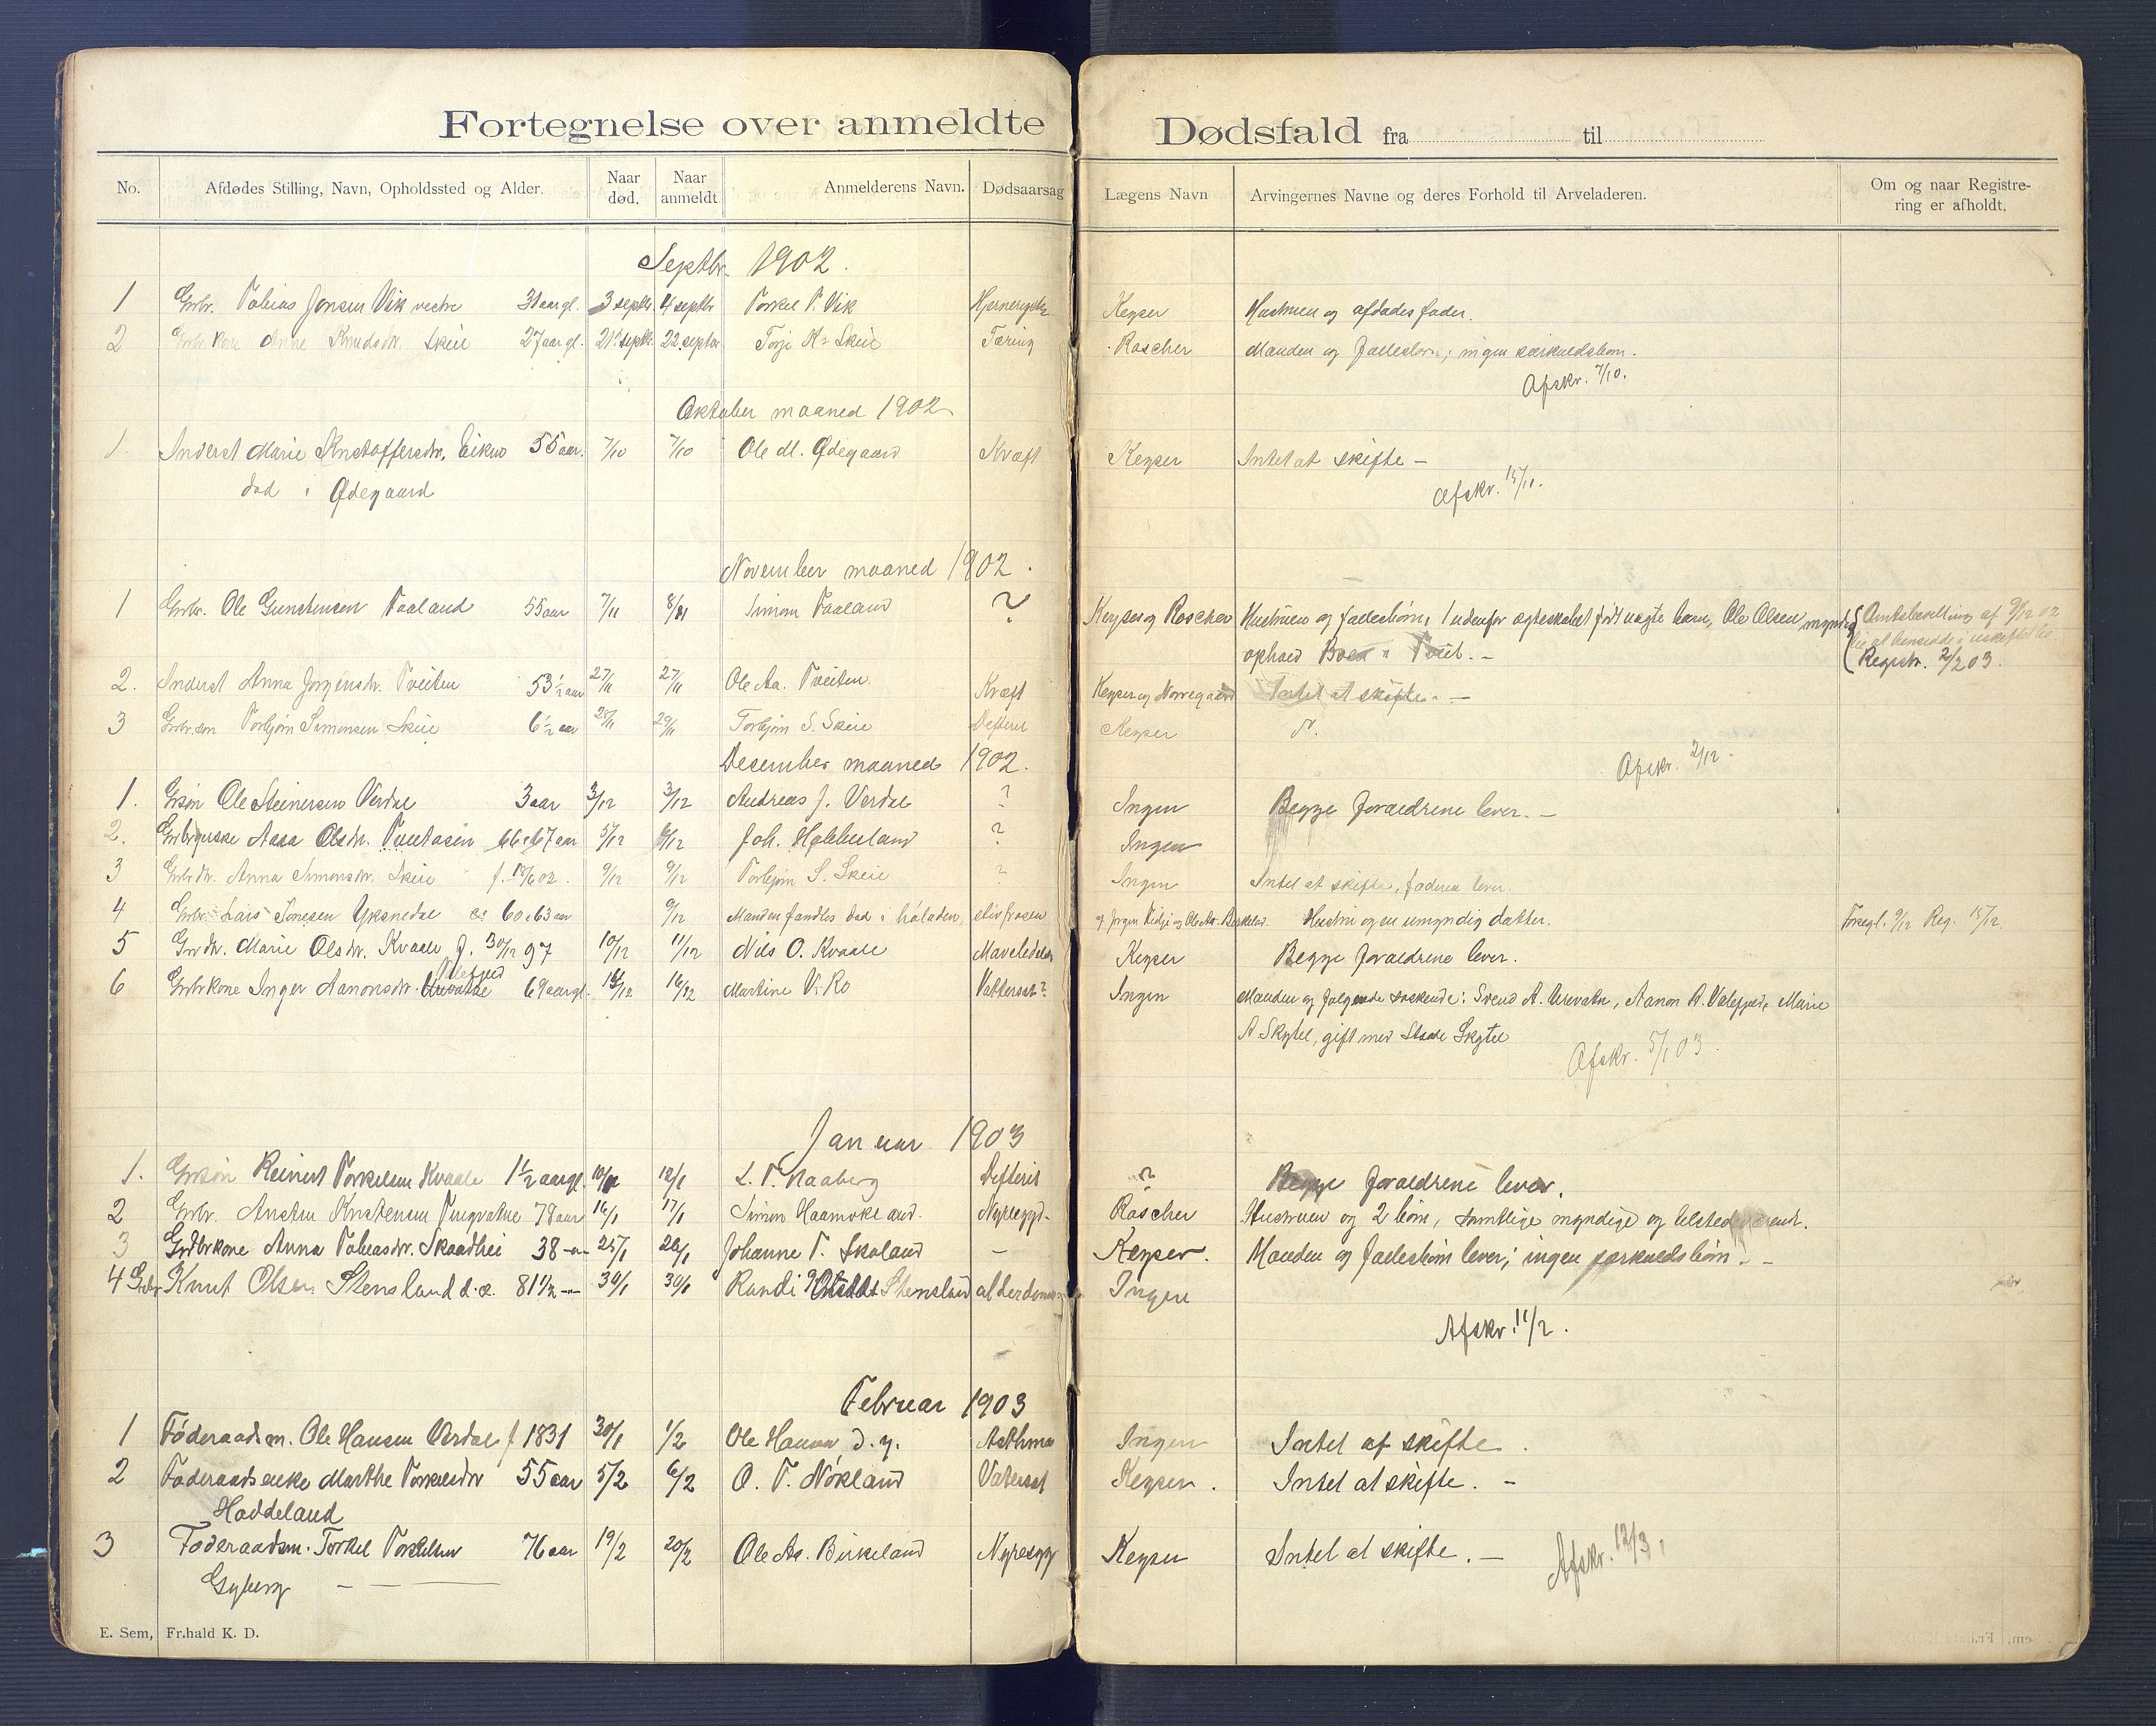 Fortegnelse over anmeldte Dødsfald fra til
No. Afdødes Stilling, Navn, Opholdssted og Alder. Naar død. Naar anmeldt Anmelderens Navn. Dødsaarsag Lægens Navn Arvingernes Navne og deres Forhold til Arveladeren. Om og naar Registrering er afholdt.
Septbr. 1902.
1 Grbr. Tobias Jonsen Vik vestre 31 aar gl. 3 septbr. 4 septbr Torkel T. Vik Keyser Hustruen og afdødes fader.
2 Grbr. kone Anne Knudsdr. Skeie 27 aar gl. 21 septbr. 22 septbr Torje K. Skeie Tæring Roscher Manden og fællesbørn; ingen særkuldsbørn.
Afskr. 7/10.
Oktober maaned 1902
1. Inderst Marie Kristoffersdr. Eiken 55 aar. 7/10 7/10 Ole M. Ødegaard Kræft Keyser Intet at skifte –
død i Ødegaard
Afskr. 15/11.
November maaned 1902.
1 Grbr. Ole Gunstensen Faaland 55 aar 7/11 8/11 Simon Faaland ? Keyser og Roscher Hustruen og fællesbørn, 1 udenfor ægteskabet født uægte barn, Ole Olsen myndig Amtsbevilling af 9/12 02
ophold
til at hensidde i uskiftet bo
Registr. 2/2 03.
2. Inderst Anna Jørgensdr. Tveiten 53 1/2 aar 27/11 27/11 Ole Aa. Tveiten Kræft Keyser og Norregaard Intet at skifte. –
3 Grbr. søn Torbjørn Simonsen Skeie 6 1/2 aar 28/11 29/11 Torbjørn S. Skeie Defterit Keyser
Afskr. 2/12.
Desember maaned 1902.
1. Grsøn Ole Steinersen Verdal 3 aar 3/12 3/12 Andreas J. Verdal ? Ingen Begge forældrene lever. –
2. Aasa Olsdr. 66 a 67 aar 5/12 6/12 Joh. Hobbeland ? Ingen
3 Grbr. dr. Anna Simonsdr. Skeie f. 18/6 02. 9/12 9/12 Torbjørn S. Skeie ? Ingen Intet at skifte, faderen lever.
4 Grbr. Lars Tonesen Yksnedal 60 a 63 aar 9/12 Manden fandtes død i høladen, stivfrosen Hustru og en umyndig datter. Forsegl. 9/12 Reg. 15/12
5 Gr. dr. Marie Olsdr. Kvaale f. 30/12 97 10/12 11/12 Nils O. Kvaale Keyser Begge forældrene lever.
6 Grbrkone Inger Aanonsdr. Valefjed 69 aar gl. 15/12 16/12 Martine V. Ro Vattersot? Ingen Manden og følgende søskende: Svend A. Urevatn, Aanon A. Valefjed, Marie
A Skytel, gift med Skytel
Afskr. 5/1 03.
Januar 1903
1. Grsøn Reinert Torkelsen Kvaale 1 1/2 aar gl. 12/1 L. T. Naaberg Defterit ? Begge forældrene lever.
2 Grbr. Ansten Kristensen Tingvatne 78 aar 16/1 17/1 Simon Haamokeland. Roscher Hustruen og 2 børn, samtlige myndige og tilstedeværende.
3 Grdbrkone Anna Tobiasdr. Skaadhei 38 –"– 25/1 26/1 Johanne T. Skoland – Keyser. Manden og fællesbørn lever; ingen særkuldsbørn. –
4 Grdbr Knut Olsen Stensland d.e. 81 1/2 –"– 30/1 30/1 Randi Stensland alderdoms Ingen
Afskr. 11/2.
Februar 1903
1 Føderaadsm. Ole Hansen Verdal f 1831 30/1 1/2 Ole Hansen d. y. Asthma Ingen Intet at skifte.
2 Føderaadsenke Marthe Torkelsdr 55 aar 5/2 6/2 O. T. Nøkland Vatersot Keyser. Intet at skifte. –
Haddeland
3 Føderaadsm. Torkel Torkelsen 76 aar 19/2 20/2 Ole Aa. Birkeland Nyresyg Keyser Intet at skifte. – Afskr. 12/3.
Gyberg – –
E. Sem, Fr.hald K. D.